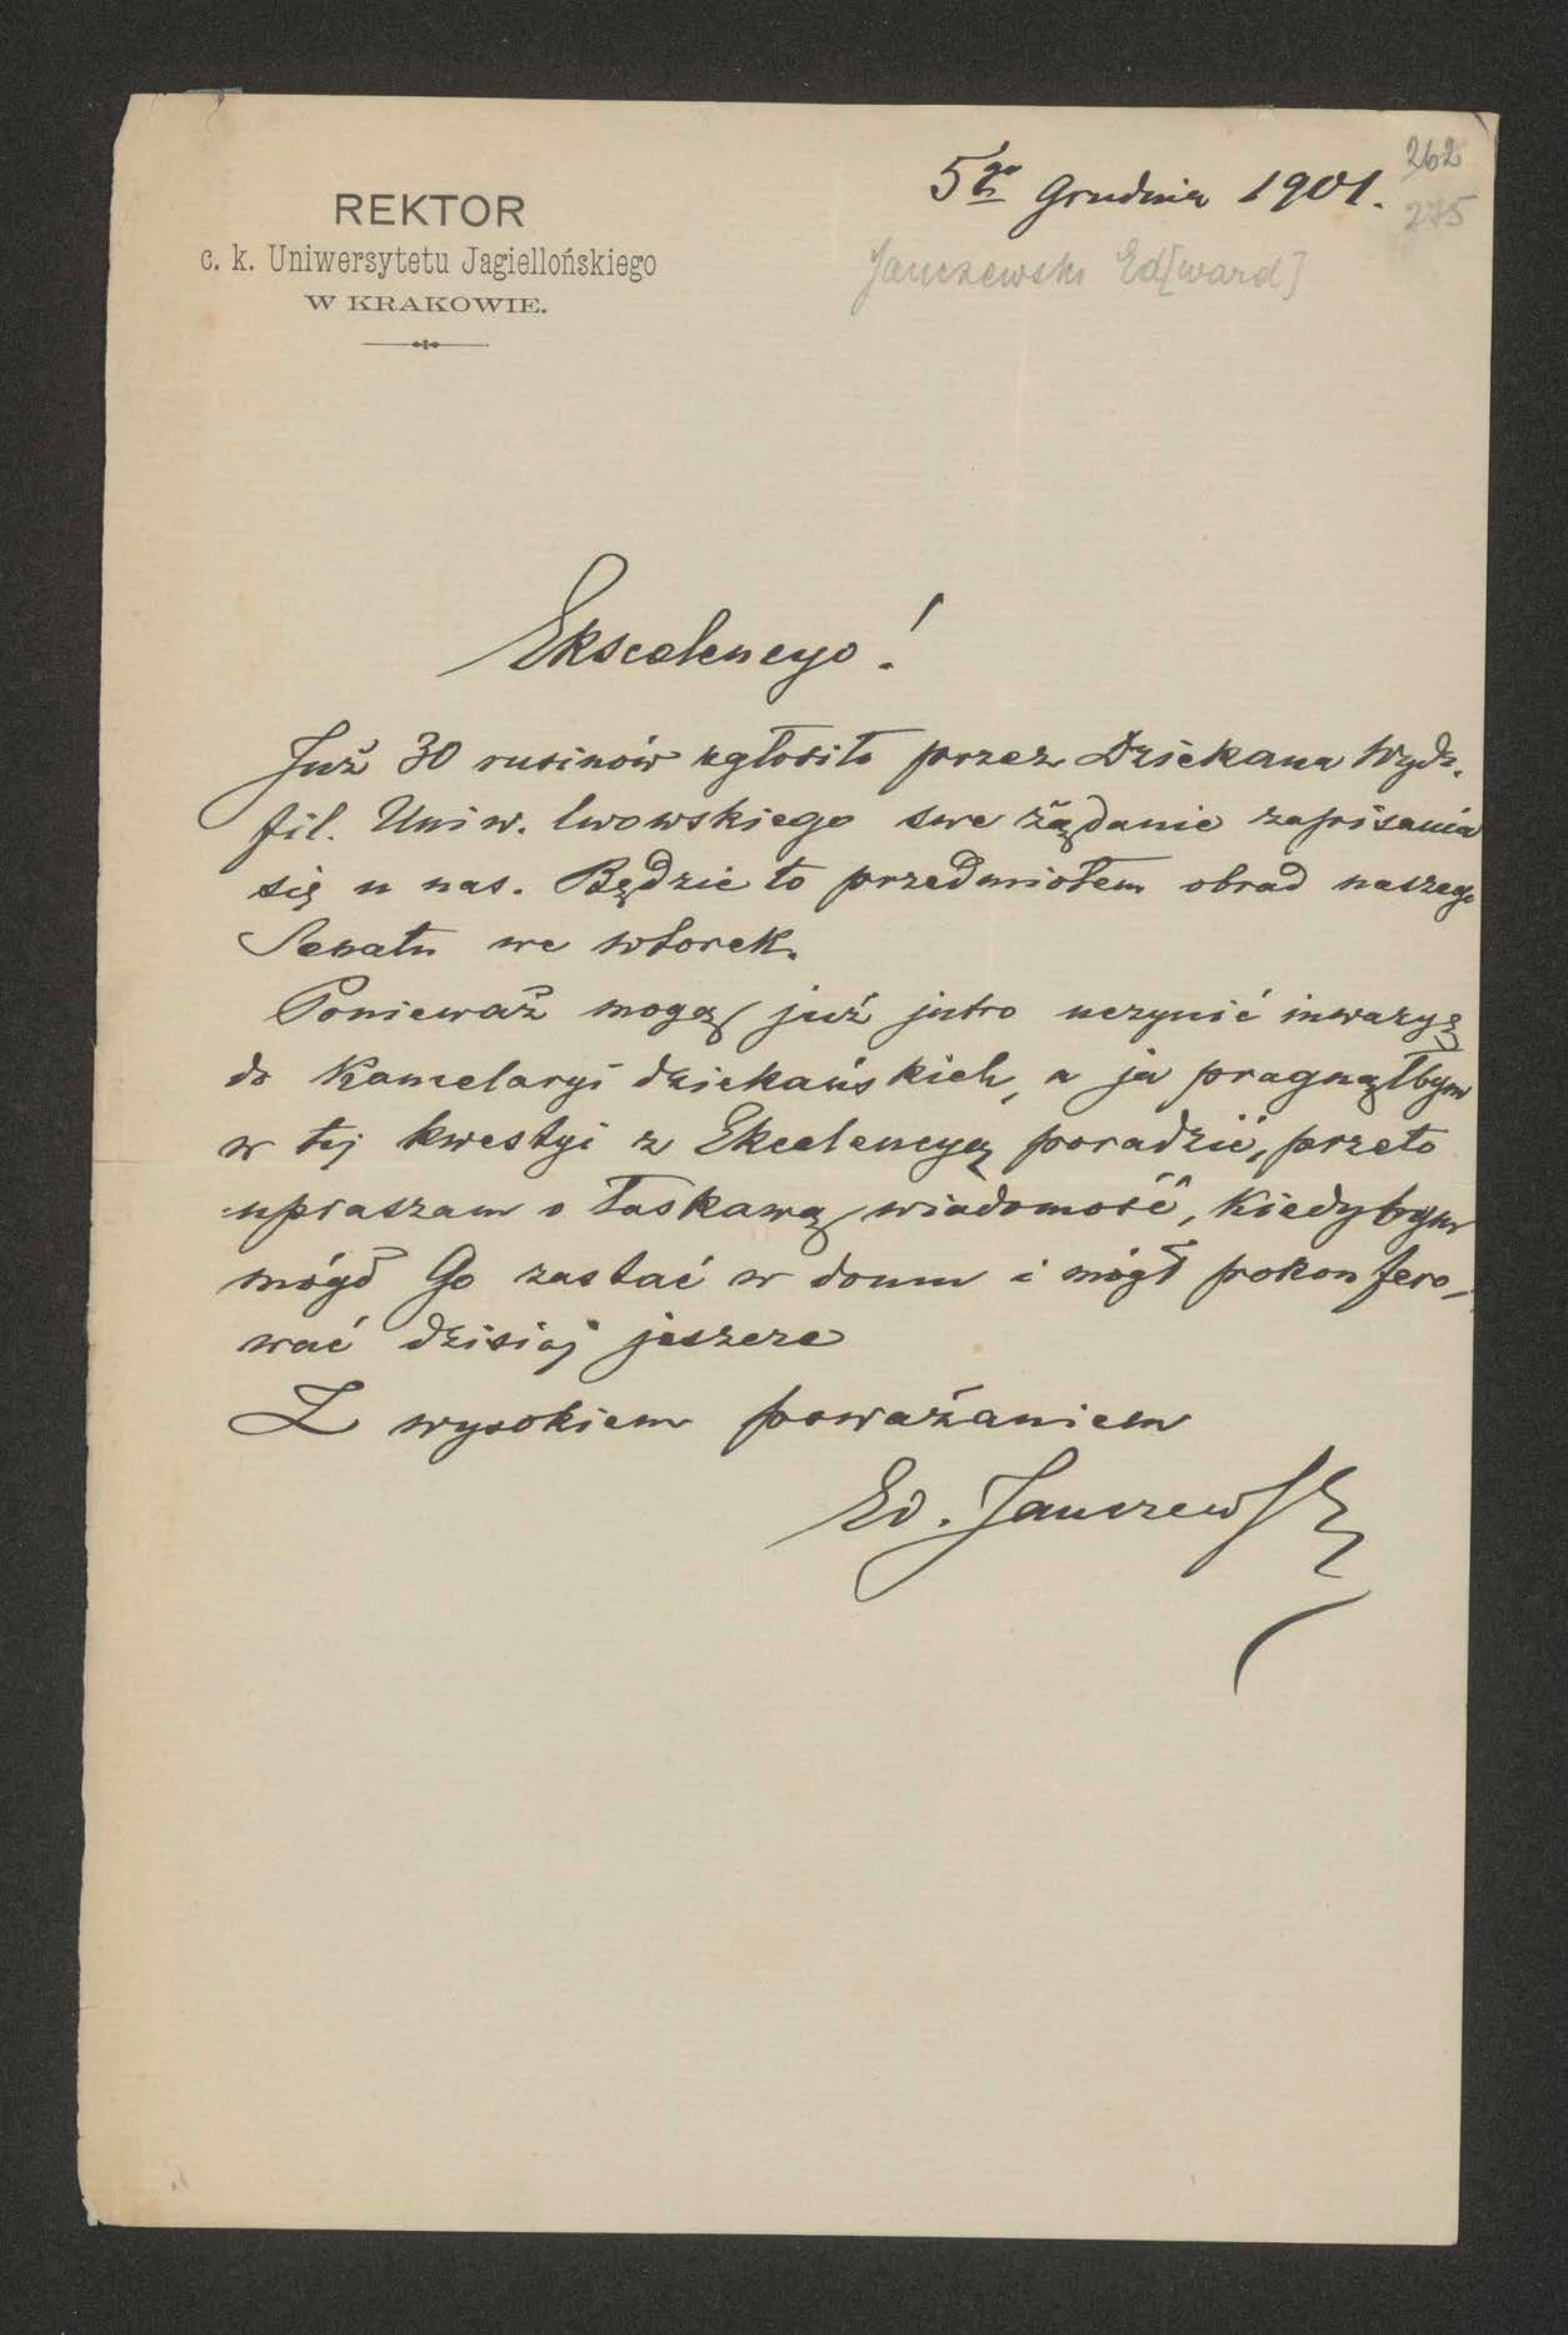 5go Grudnia 1901.
262
275
REKTOR
c. k. Uniwersytetu Jagiellońskiego
W KRAKOWIE.
Janczewski Ed[ward]
Ekscelencyo!
Już 30 rusinów zgłosiło przez Dziekana Wydz.
fil. Uniw. lwowskiego swe żądanie zapisania
się u nas. Będzie to przedmiotem obrad naszego
Senatu we wtorek.
Ponieważ mogą już jutro uczynić inwazyę
do Kancelaryi dziekańskich, a ja pragnąłbym
w tej kwestyi z Ekcelencyą poradzić, przeto
upraszam o łaskawą wiadomość, kiedybym
mógł Go zastać w domu i mógł pokonfero-
wać dzisiaj jeszcze
Z wysokiem poważaniem
Ed. Janczewski